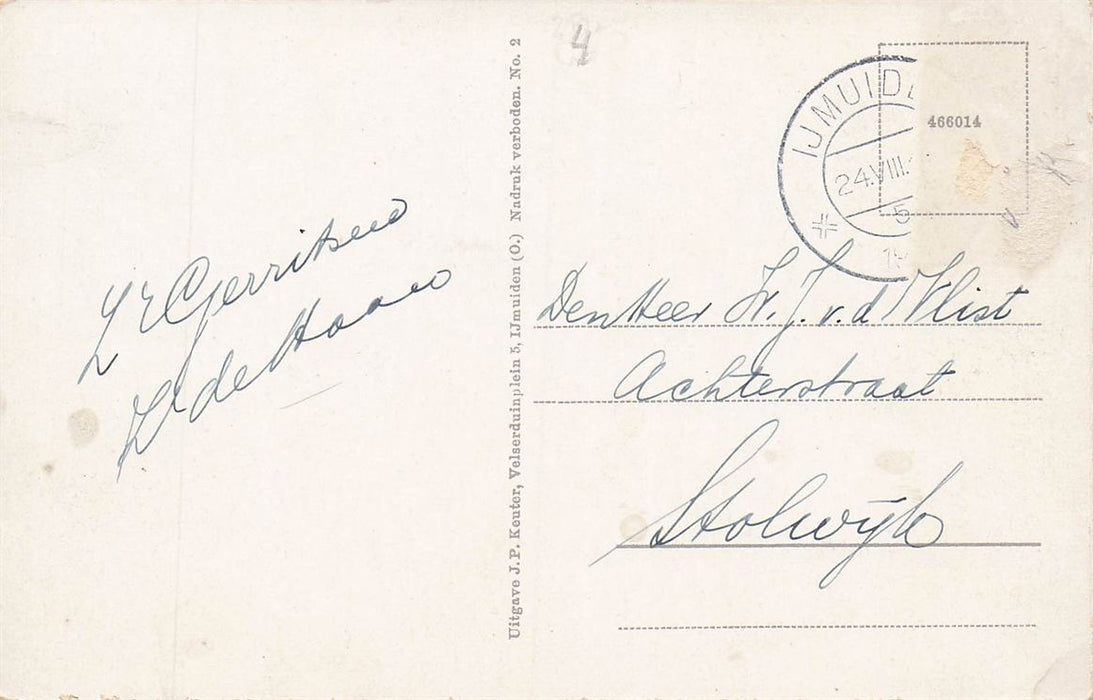 L E Gerritsen
de Haan
Uitgave J.P. Keuter, Velserduinplein 5, IJmuiden (O.) Nadruk verboden. No. 2
4
IJMUIDE
24.VIII.
5
19
466014
Den Heer W. J. v. d. Vlist
Achterstraat
Stolwijk